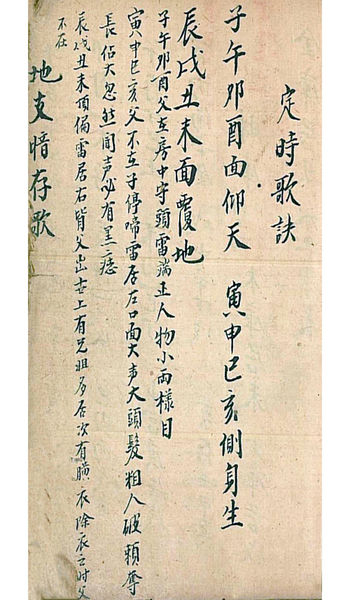 定時歌訣
子午卯酉面仰天　寅申巳亥側身生
辰戌丑未面覆地
子午卯酉父在房中守頭雷端正人物小兩樣目
寅申巳亥父不在子停啼雷居左口面大声大頭髮粗人破賴奪
長佰大忽然聞声必有黑痣
辰戌丑未頂偈雷居右皆父出世上有兄姐多居次有 衣除衣之时父
不在
地支暗存歌